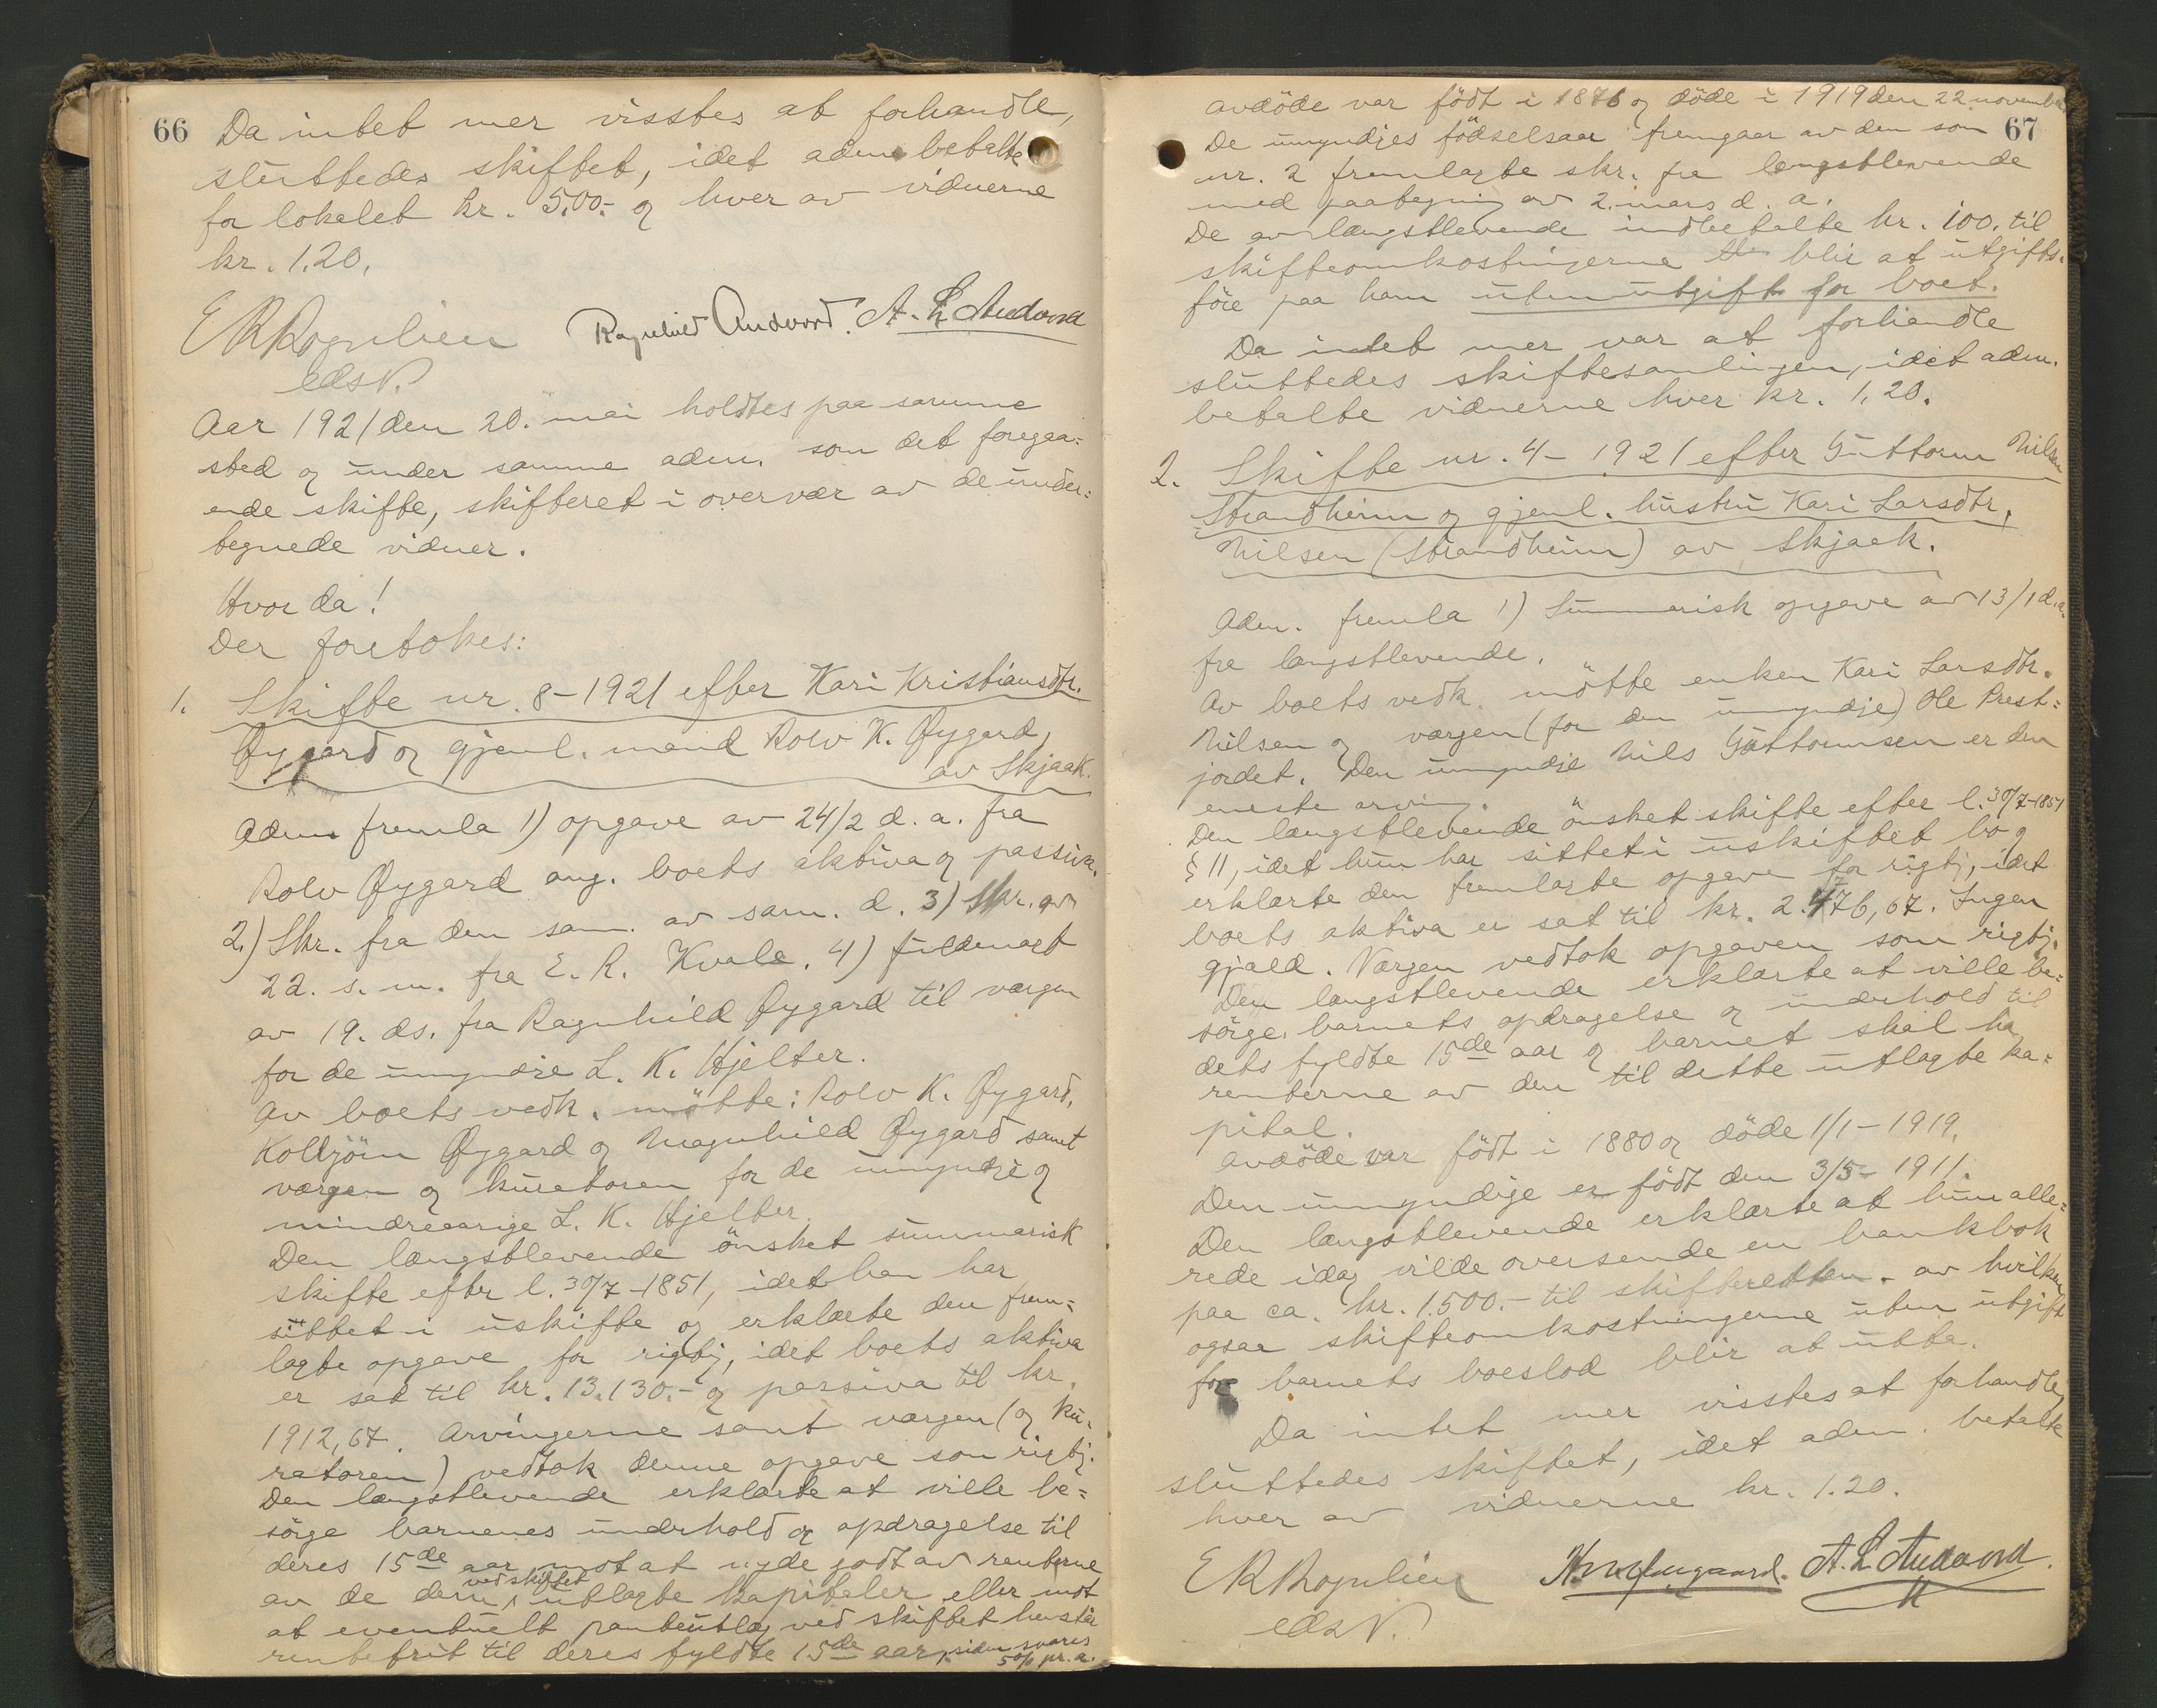 66
Da intet mer visstes at forhandle,
sluttedes skiftet, idet adm. betalte
for lokalet kr. 5,00.- og hver av vidnerne
kr. 1.20.
E R Rognlien Ragnhild Andvord. A. L. Andvord
edsv.
Aar 1921 den 20. mai holdtes paa samme
sted og under samme adm. som det foregaa=
ende skifte, skifteret i overvær av de under=
tegnede vidner.
Hvor da!
Der foretokes:
1. Skifte nr. 8-1921 efter Kari Kristiansdtr.
Øygard og gjenl. mand Rolv K. Øygard,
av Skjaak.
Adm. fremla 1) opgave av 24/2 d. a. fra
Rolv Øygard ang. boets aktiva og passiva.
2) Skr. fra den sam. av sam. d. 3) Skr. av
22. s. m. fra E. R. Kvale. 4) fuldmagt
av 19. ds. fra Ragnhild Øygard til vergen
for de umyndige L. K. Hjelter.
Av boets vedk. mötte: Rolv K. Øygard,
Kolbjörn Øygard og Magnhild Øygard samt
vergen og kuratoren for de umyndige og
mindreaarige L. K. Hjelter.
Den længstlevende önsket summarisk
skifte efter l. 30/7-1851, idet han har
sittet i uskifte og erklærte den frem=
lagte opgave for rigtig, idet boets aktiva
er sat til kr. 13.130.- og passiva til kr.
1912,67. Arvingerne samt vergen (og ku=
ratoren) vedtok denne opgave som rigtig.
Den længstlevende erklærte at ville be=
sörge barnenes underhold og opdragelse til
deres 15de aar mot at nyde godt av renterne
av de dem ved skiftet utlagte kapitaler eller mot
at eventuelt panteutlæg ved skiftet henstår
rentefrit til deres fyldte 15de aar, siden svares
5% pr. a.
67
avdöde var födt i 1876 og döde i 1919 den 22. november.
De umyndiges födselsaar fremgaar av den som
nr. 2 fremlagte skr. fra længstlevende
med paategning av 2. mars d. a.
De av længstlevende indbetalte kr. 100. til
skifteomkostningerne blir at utgifts=
före paa ham uten utgift for boet.
Da intet mer var at forhandle
sluttedes skiftesamlingen, idet adm.
betalte vidnerne hver kr. 1,20.
2. Skifte nr. 4-1921 efter Guttorm Nilsen
Strandheim og gjenl. hustru Kari Larsdtr,
Nilsen (Strandheim) av Skjaak.
Adm. fremla 1) Summarisk opgave av 13/1 d.a.
fra længstlevende.
Av boets vedk. mötte enken Kari Larsdtr.
Nilsen og vergen (for den umyndige) Ole Prest=
jordet. Den umyndige Nils Guttormsen er den
eneste arving.
Den længstlevende önsket skifte efter l. 30/7-1851
§ 11, idet hun har sittet i uskiftet bo og
erklærte den fremlagte opgave for rigtig, idet
boets aktiva er sat til kr. 2.476,67. Ingen
gjæld. Vergen vedtok opgaven som rigtig.
Den længstlevende erklærte at ville be=
sörge barnets opdragelse og underhold til
dets fyldte 15de aar og barnet skal ha
renterne av den til dette utlagte ka=
pital.
Avdöde var födt i 1880 og döde 1/1-1919.
Den umyndige er födt den 3/5-1911.
Den længstlevende erklærte at hun alle=
rede idag vilde oversende en bankbok
paa ca. kr. 1.500.- til skifteretten. av hvilken
ogsaa skifteomkostningerne uten utgift
for barnets boeslod blir at utta.
Da intet mer visstes at forhandle,
sluttedes skiftet, idet adm. betalte
hver av vidnerne kr. 1.20.
E R Rognlien A. L. Andvord.
edsv.